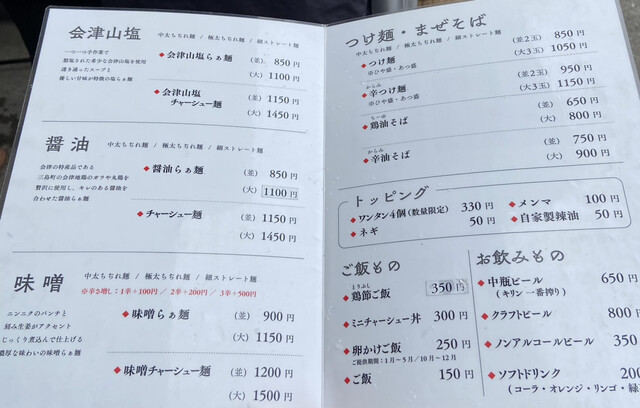 会津山塩 中太ちぢれ麺 / 極太ちぢれ麺 / 細ストレート麺
一つ一つ手作業で
製塩された希少な会津山塩を使用
透き通ったスープと
優しい甘味が特徴の塩らぁ麺
◆会津山塩らぁ麺 (並) 850円
(大) 1100円
◆会津山塩
チャーシュー麺 (並) 1150円
(大) 1450円
醤油 中太ちぢれ麺 / 極太ちぢれ麺 / 細ストレート麺
会津の特産品である
三島町の会津地鶏のガラや丸鶏を
贅沢に使用し、キレのある醤油を
合わせた醤油らぁ麺
◆醤油らぁ麺 (並) 850円
(大) 1100円
◆チャーシュー麺 (並) 1150円
(大) 1450円
味噌 中太ちぢれ麺 / 極太ちぢれ麺 / 細ストレート麺
※辛さ増し:1辛+100円 / 2辛+200円 / 3辛+500円
ニンニクのパンチと
刻み生姜がアクセント
じっくり煮込んで仕上げる
濃厚な味わいの味噌らぁ麺
◆味噌らぁ麺 (並) 900円
(大) 1150円
◆味噌チャーシュー麺 (並) 1200円
(大) 1500円
つけ麺・まぜそば
中太ちぢれ麺 / 極太ちぢれ麺 / 細ストレート麺
◆つけ麺 (並2玉) 850円
※ひや盛・あつ盛 (大3玉) 1050円
からみ
◆辛つけ麺 (並2玉) 950円
※ひや盛・あつ盛 (大3玉) 1150円
ちーゆ
◆鶏油そば (並) 650円
(大) 800円
からみ
◆辛油そば (並) 750円
(大) 900円
トッピング
◆ワンタン4個(数量限定) 330円 ◆メンマ 100円
◆ネギ 50円 ◆自家製辣油 50円
ご飯もの
とりぶし
◆鶏節ご飯 350円
◆ミニチャーシュー丼 300円
◆卵かけご飯 250円
ご提供期間:1月〜5月/10月〜12月
◆ご飯 150円
お飲みもの
◆中瓶ビール 650円
(キリン 一番搾り)
◆クラフトビール 800
◆ノンアルコールビール 350
◆ソフトドリンク 200
(コーラ・オレンジ・リンゴ・緑